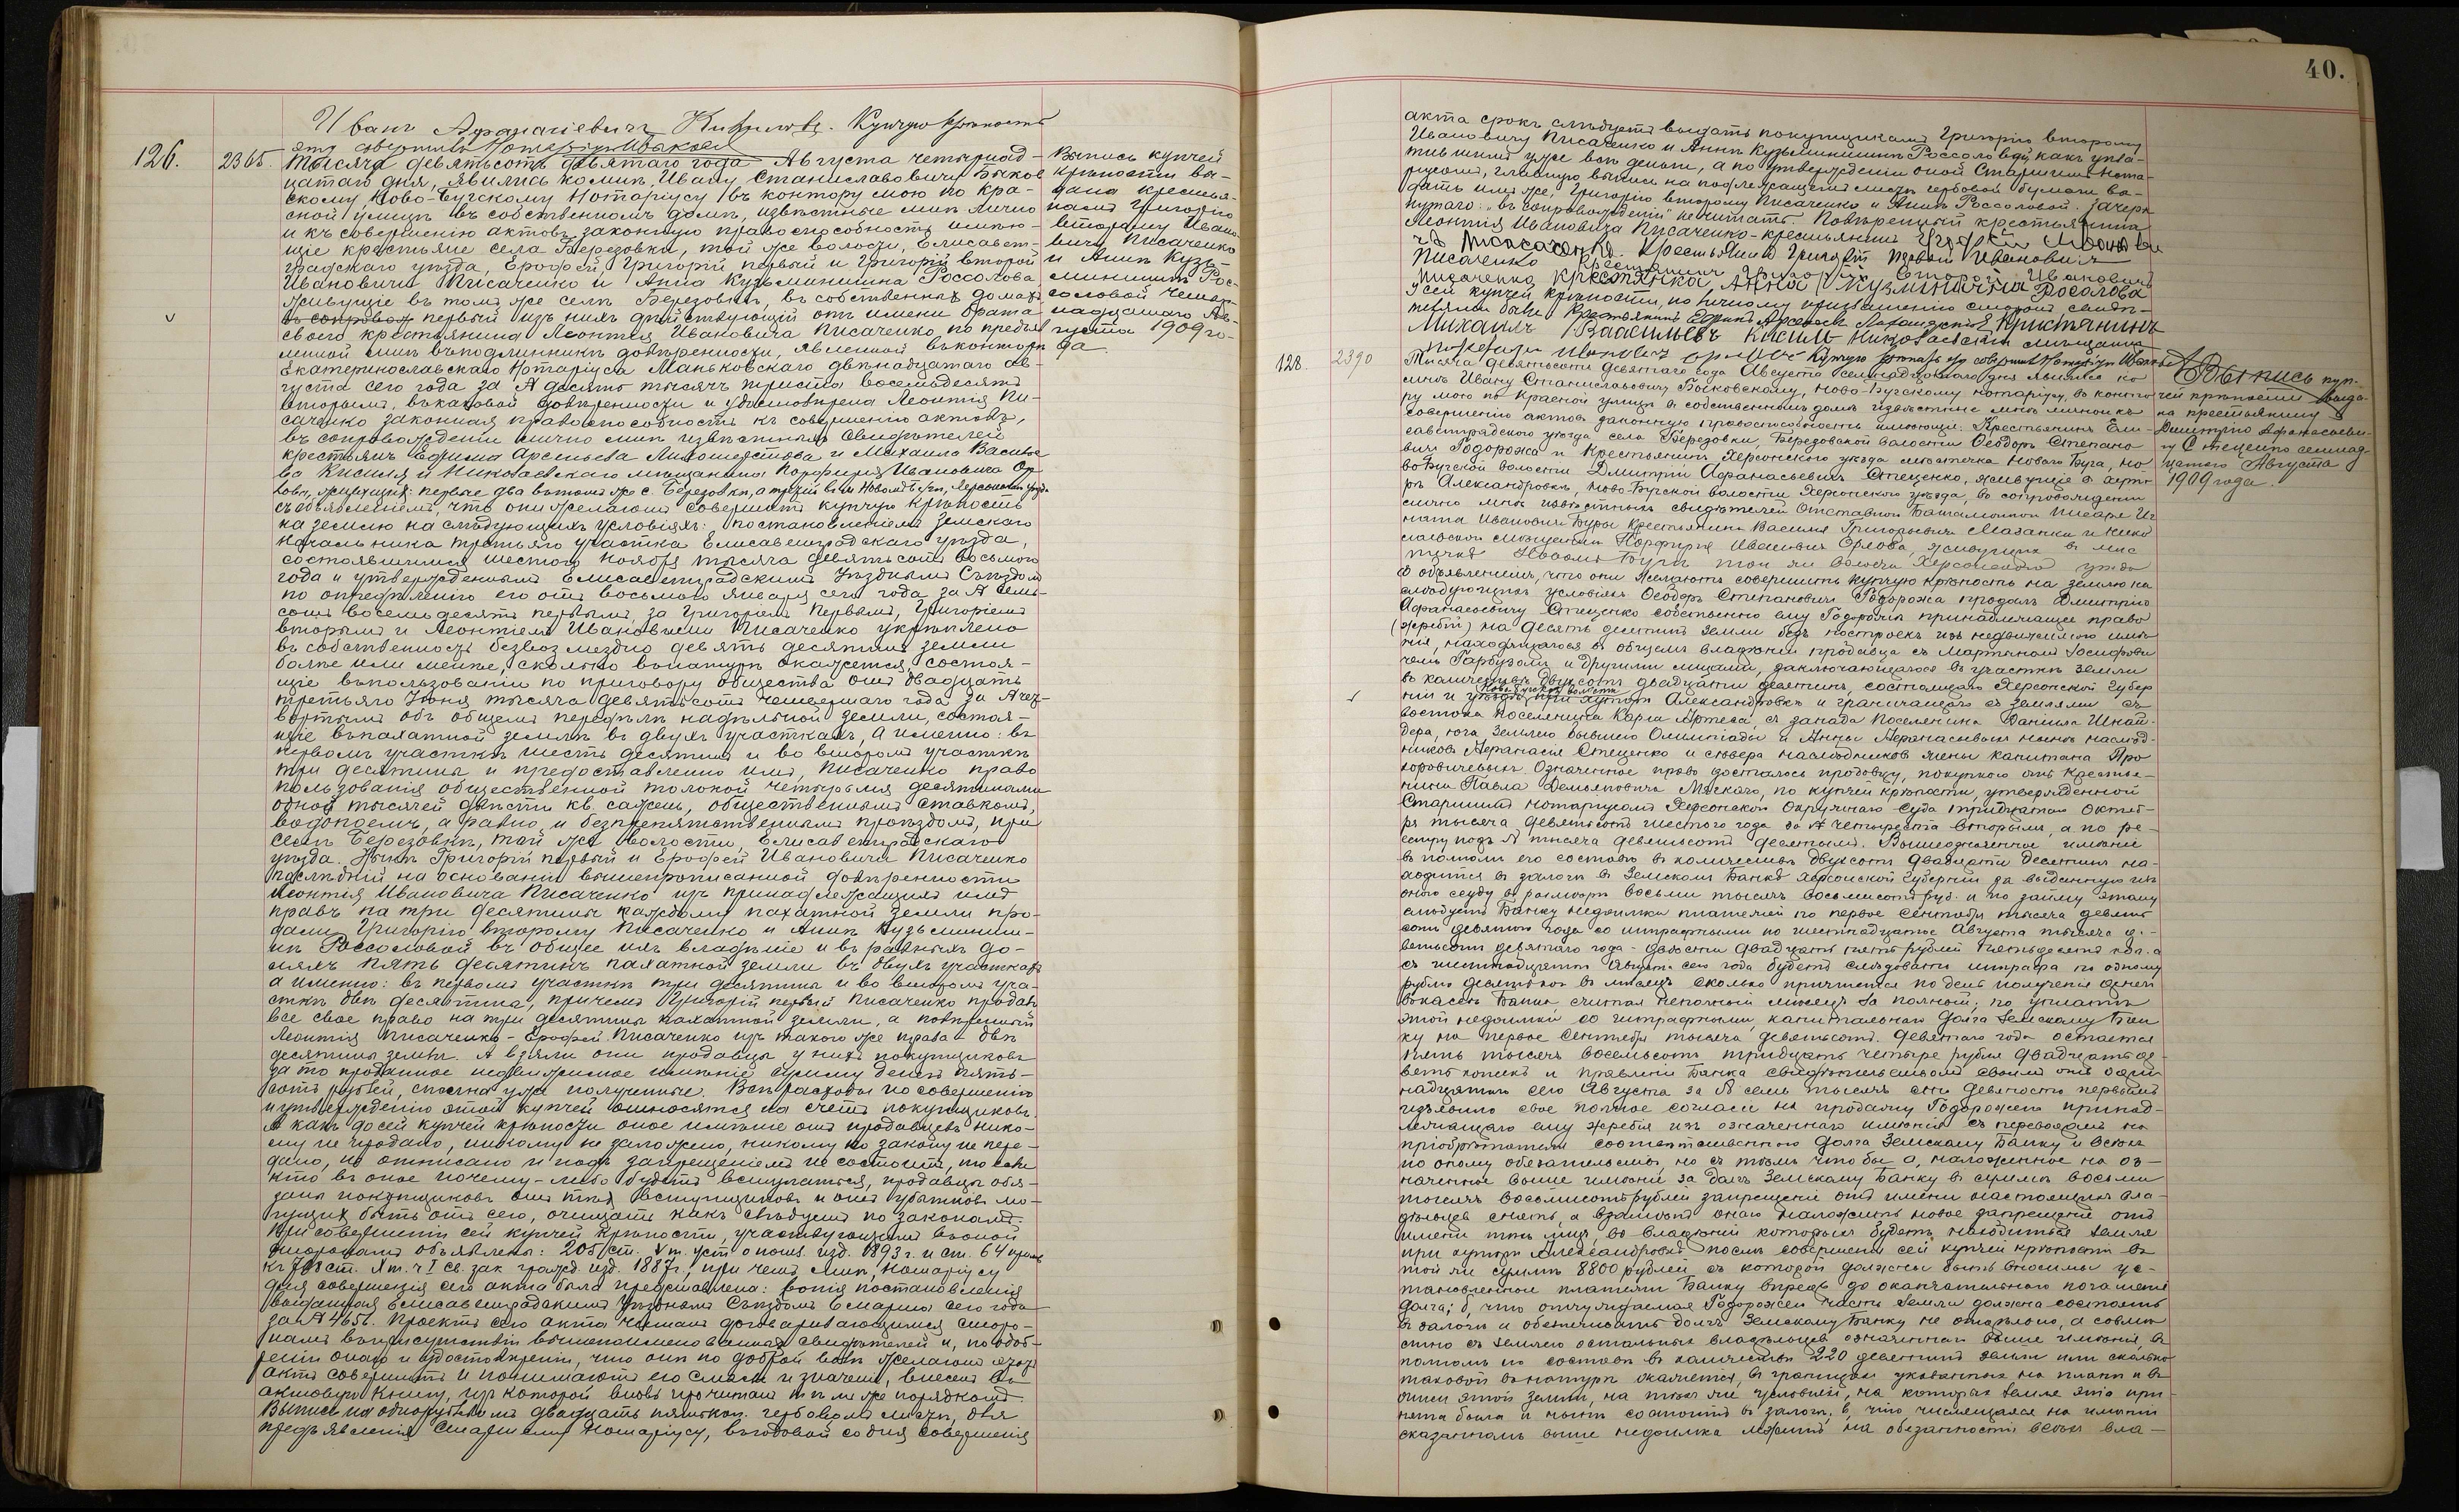 40.
Иванъ Афанасіевичъ Купчую крѣпость
эту совершилъ Нотаріусъ
126.
2365.
Тысяча девятьсотъ девятаго года Августа четырнад-
цатаго дня, явились ко мнѣ, Ивану Станиславовичу Быков
скому, Ново-Бугскому Нотаріусу въ контору мою по Кра-
сной улицѣ въ собственномъ домѣ, извѣстные мнѣ лично
и къ совершенію актовъ законную правоспособность имѣю-
щіе крестьяне села Березовки, той же волости, Елисавет-
градскаго уѣзда, Ерофей, Григорій первый и Григорій второй
Ивановичи Писаченко и Анна Кузьминишна Россолова,
живущіе въ томъ же селѣ Березовкѣ, въ собственныхъ домахъ,
въ сопровож первый изъ нихъ дѣйствующій отъ имени брата
своего крестьянина Леонтія Ивановича Писаченко, по предъяв
ленной мнѣ въ подлинникѣ довѣренности, явленной въ конторѣ
Екатеринославскаго Нотаріуса Маньковскаго двѣнадцатаго Ав-
густа сего года за № десять тысячъ триста восемьдесятъ
вторымъ, въ каковой довѣренности и удостовѣрена Леонтія Пи-
саченко законная правоспособность къ совершенію актовъ,
въ сопровожденіи лично мнѣ извѣстныхъ свидѣтелей
крестьянъ Ефима Арсеньева и Михаила Василье
ва Кисиля и Николаевскаго мѣщанина Порфирія Ивановича Ор
лова, живущихъ: первые два въ томъ же с. Березовкѣ, а третій въ м. Новомъ-Бугѣ, Херсонскаго уѣзда
съ объявленіемъ, что они желаютъ совершить купчую крѣпость
на землю на слѣдующихъ условіяхъ: постановленіемъ Земскаго
Начальника третьяго участка Елисаветградскаго уѣзда,
состоявшимся шестого Ноября тысяча девятьсотъ восьмого
года и утвержденнымъ Елисаветградскимъ Уѣзднымъ Съѣздомъ
по опредѣленію его отъ восьмого Января сего года за № семь-
сотъ восемьдесятъ первымъ, за Григоріемъ Первымъ, Григоріемъ
вторымъ и Леонтіемъ Ивановыми Писаченко укрѣплено
въ собственность безвозмездно девять десятинъ земли
болѣе или менѣе, сколько въ натурѣ окажется, состоя-
щіе въ пользованіи по приговору общества отъ двадцать
третьяго Іюня тысяча девятьсотъ четвертаго года за № чет-
вертымъ объ общемъ передѣлѣ надѣльной земли, состоя-
щіе въ пахатной землѣ въ двухъ участкахъ, а именно: въ
первомъ участкѣ шесть десятинъ и во второмъ участкѣ
три десятины и предоставлено имъ, Писаченко право
пользованія общественной толокой четырьмя десятинами
одной тысячей двѣсти кв. сажень, общественнымъ ставкомъ,
водопоемъ, а равно и безпрепятственнымъ проѣздомъ, при
селѣ Березовкѣ, той же волости, Елисаветградскаго
уѣзда. Нынѣ Григорій первый и Ерофей Ивановичи Писаченко
послѣдній на основаніи вышепрописанной довѣренности
Леонтія Ивановича Писаченко изъ принадлежащихъ имъ
правъ на три десятины каждому пахатной земли про-
дали Григорію второму Писаченко и Аннѣ Кузьминиш-
нѣ Россоловой въ общее ихъ владѣніе и въ равныхъ до-
ляхъ пять десятинъ пахатной земли въ двухъ участкахъ
а именно: въ первомъ участкѣ три десятины и во второмъ уча-
сткѣ двѣ десятины, причемъ Григорій первый Писаченко продалъ
все свое право на три десятины пахатной земли, а повѣренный
Леонтія Писаченко - Ерофей Писаченко изъ такого же права - двѣ
десятины земли. А взяли они продавцы у нихъ покупщиковъ
за то проданное недвижимое имѣніе сумму денегъ пять-
сотъ рублей, сполна уже полученные. Всѣ расходы по совершенію
и утвержденію этой купчей относятся на счетъ покупщиковъ.
А какъ до сей купчей крѣпости оное имѣніе отъ продавцевъ нико-
му не продано, никому не заложено, никому по закону не пере-
дано, не отписано и подъ запрещеніемъ не состоитъ, то если
кто въ оное почему-либо будетъ вступаться, продавцы обя-
заны покупщиковъ отъ тѣхъ вступщиковъ и отъ убытковъ мо-
гущихъ быть отъ сего, очищать какъ слѣдуетъ по законамъ.
При совершеніи сей купчей крѣпости, участвующимъ въ оной
сторонамъ объявлены: 205 ст. V т. уст. о пошл. изд. 1893 г. и ст. 64 прим
къ 708 ст. X т. ч I св. зак. гражд. изд. 1887 г., при чемъ мнѣ, Нотаріусу
для совершенія сего акта была представлена: копія постановленія
выданная Елисаветградскимъ Уѣзднымъ Съѣздомъ 6 марта сего года
за № 4656. Проектъ сего акта читанъ договаривающимся сторо-
намъ въ присутствіи вышепоименованныхъ свидѣтелей и, по одоб-
реніи онаго и удостовѣреніи, что они по доброй волѣ желаютъ его
актъ совершить и понимаютъ его смыслъ и значеніе, внесенъ въ
актовую книгу, изъ которой вновь прочитанъ тѣмъ же порядкомъ.
Выпись на однорублевомъ двадцать пять коп. гербовомъ листѣ, для
предъявленія Старшему Нотаріусу, въ годовой со дня совершенія
Выпись купчей
крѣпости вы-
дана крестья-
намъ Григорію
второму Ивано-
вичу Писаченко
и Аннѣ Кузь-
минишнѣ Рос-
соловой четыр-
надцатаго Ав-
густа 1909 го-
да.
акта срокъ слѣдуетъ выдать покупщикамъ Григорію второму
Ивановичу Писаченко и Аннѣ Кузьминишнѣ Россоловой, какъ упла-
тившимъ уже всѣ деньги, а по утвержденіи оной Старшимъ Нота-
ріусомъ, главную выпись на подлежащемъ листѣ гербовой бумаги вы-
дать имъ же, Григорію второму Писаченко и Аннѣ Россоловой. Зачерк
нутаго: „въ сопровожденіи" не читать. Повѣренный крестьянина
Леонтія Ивановича Писаченко - крестьянинъ
Писаченко. Крестьянинъ Григорій Первой Ивановичъ
Писаченко крестьянинъ Григорій Второй Ивановичъ
Писаченко, крестянка Анна Кузминична Росолова
У сей купчей крѣпости, по личному приглашенію сторонъ свидѣ-
телями были: Крестьянинъ Ефимъ Арсеньевъ Кристянинъ
Михаилъ Ваасильевъ Кисиль Николаевскій мѣщанинъ
Иванович Орловъ Купчую крѣпость эту совершилъ Нотаріусъ
128.
2390
Тысяча девятьсотъ девятаго года Августа семнадцатаго дня явились ко
мнѣ Ивану Станиславовичу Быковскому, Ново-Бугскому Нотаріусу, въ конто
ру мою по Красной улицѣ въ собственномъ домѣ извѣстные мнѣ лично и къ
совершенію актовъ законную правоспособность имѣющіе: Крестьянинъ Ели-
саветградскаго уѣзда села Березовки, Березовской волости Ѳеодоръ Степано
вичъ Годорожа и Крестьянинъ Херсонскаго уѣзда мѣстечка Новаго Буга, Но
во-Бугской волости Дмитрій Афанасьевичъ Стеценко, живущіе въ хуто
рѣ Александровкѣ, Ново-Бугской волости Херсонскаго уѣзда, въ сопровожденіи
лично мнѣ извѣстныхъ свидѣтелей Отставного Писаря Иг
ната Ивановича Буры Крестьянина Василія Григорьевича Мазанки и Нико
лаевскаго Мѣщанина Порфирія Ивановича Орлова, живущихъ въ мѣс
течкѣ Новомъ Бугѣ той же волости Херсонскаго уѣзда
съ объявленіемъ, что они желаютъ совершить купчую крѣпость на землю на
слѣдующихъ условіяхъ Ѳеодоръ Степановичъ Годорожа продалъ Дмитрію
Афанасьевичу Стеценко собственно ему Годорожѣ принадлежащее право
(жребій) на десять десятинъ земли безъ построекъ изъ недвижимаго имѣ
нія, находящагося въ общемъ владѣніи продавца съ Мартыномъ Іосифови
чемъ Гарбузомъ и другими лицами, заключающагося въ участкѣ земли
въ количествѣ двухсотъ двадцати десятинъ, состоящаго Херсонской Губер
ніи и уѣзда, Ново-Бугской волости при хуторѣ Александровкѣ и граничащаго съ землями: съ
востока Поселенца Карла Мутеса, съ запада Поселенца Даниила Шнай-
дера, юга Землею бывшею Олимпіады и Анны Афанасьевыхъ нынѣ наслѣд-
никовъ Афанасія Стеценко и сѣвера наслѣдниковъ жены капитана Про
коровичевыхъ. Означенное право досталось продавцу, покупкою отъ Крестья-
нина Павла Демьяновича Мяскаго, по купчей крѣпости, утвержденной
Старшимъ Нотаріусомъ Херсонскаго Окружнаго Суда тридцатаго Октяб-
ря тысяча девятьсотъ шестого года за № четыреста вторымъ, а по ре-
естру подъ № тысяча девятьсотъ десятымъ. Вышеозначенное имѣніе
въ полномъ его составѣ въ количествѣ двухсотъ двадцати десятинъ на-
ходится въ залогѣ въ Земскомъ Банкѣ Херсонской Губерніи за выданную изъ
онаго ссуду въ размѣрѣ восьми тысячъ восьмисотъ руб. и по займу этому
слѣдуетъ Банку недоимки платежей по первое Сентября тысяча девять
сотъ девятаго года со штрафными по шестнадцатое Августа тысяча де-
вятьсотъ девятаго года - двѣсти двадцать пять рублей пятьдесятъ коп. а
съ шестнадцатаго Августа сего года будетъ слѣдовать штрафа по одному
рублю десяти коп въ мѣсяцъ сколько причтется по день полученія денегъ
въ кассѣ Банка считая неполный мѣсяцъ за полный; по уплатѣ
этой недоимки со штрафными, капитальнаго долга Земскому Бан
ку на первое Сентября тысяча девятьсотъ девятаго года остается
пять тысячъ восемьсотъ тридцать четыре рубля двадцать де-
вять копѣекъ и правленіе Банка свидѣтельствомъ своимъ отъ один-
надцатаго сего Августа за № семь тысячъ сто девяносто первымъ
изъявило свое полное согласіе на продажу Годорожею принад-
лежащаго ему жребія изъ означеннаго имѣнія съ переводомъ на
пріобрѣтателя соотвѣтственнаго долга Земскому Банку и всѣхъ
по оному обязательствъ, но съ тѣмъ что бы а, наложенное на оз-
наченное выше имѣніе за долгъ Земскому Банку въ суммѣ восьми
тысячъ восьмисотъ рублей запрещеніе отъ имени настоящихъ вла-
дѣльцевъ снять, а взамѣнъ онаго наложить новое запрещеніе отъ
имени тѣхъ лицъ, во владѣніи которыхъ будетъ находиться земля
при хуторѣ Александровкѣ послѣ совершенія сей купчей крѣпости въ
той же суммѣ 8800 рублей, съ которой должны быть вносимы ус-
тановленные платежи Банку впредь до окончательнаго погашенія
долга; б, что отчуждаемая Годорожею часть земли должна состоять
въ залогѣ и обезпечивать долгъ Земскому Банку не отдѣльно, а совмѣ
стно съ землею остальныхъ владѣльцевъ означеннаго выше имѣнія, въ
полномъ его составѣ въ количествѣ 220 десятинъ земли или сколько
таковой въ натурѣ окажется, въ границахъ указанныхъ на планѣ и въ
описи этой земли, на тѣхъ же условіяхъ, на которыхъ земля эта при-
нята была и нынѣ состоитъ въ залогѣ; в, что числящаяся на имѣніи
сказанномъ выше недоимка лежитъ на обязанности всѣхъ вла-
Выпись куп-
чей крѣпости выда-
на крестьянину
Дмитрію Афанасьеви-
чу Стеценко семнад
цатаго Августа
1909 года.